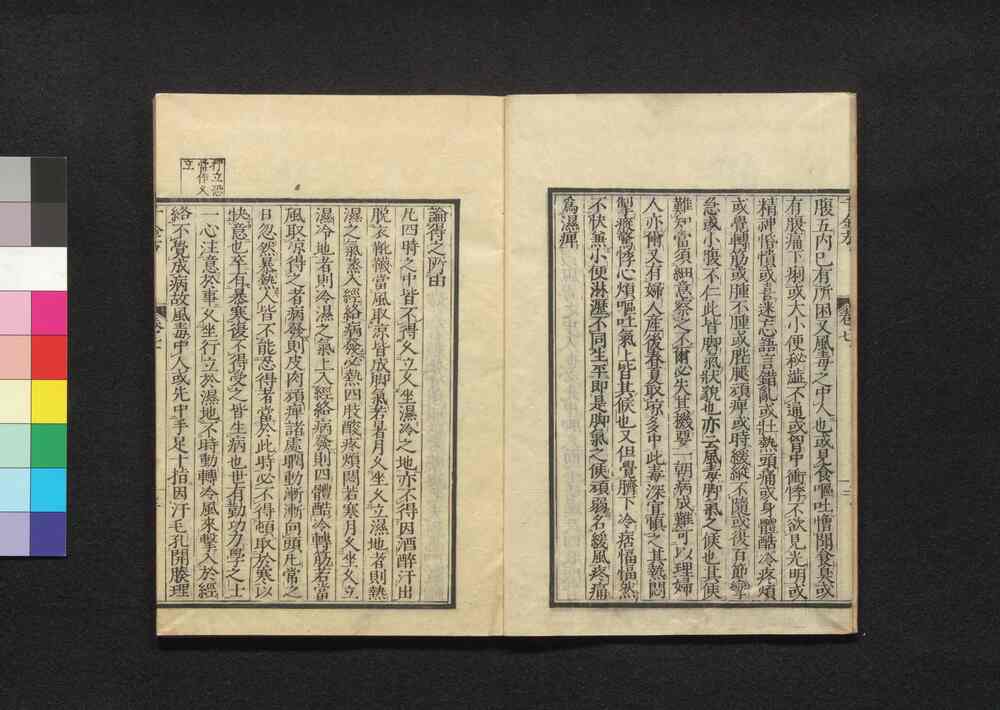 腹五内已有所困又風毒之中人也或見食嘔吐憎聞食臭或
有腹痛下痢或大小便秘澁不通或胷中衝悸不欲見光明或
精神惛憒或喜迷忘語言錯亂或壯熱頭痛或身體酷冷疼煩
或覺轉筋或腫不腫或䏶腿頑痺或時緩縱不隨或復百節攣
急或小腹不仁此皆脚氣狀貌也亦云風毒脚氣之候也其候
難知當須細意察之不爾必失其機要一朝病成難可以理婦
人亦爾又有婦人産後春夏取凉多中此毒深宜愼之其熱悶
掣瘲驚悸心煩嘔吐氣上皆其候也又但覺臍下冷痞愊愊然
不快兼小便淋瀝不同生平即是脚氣之候頑弱名緩風疼痛
爲濕痺
千金方
卷七
行立恐
當作久
立
論得之所由
凡四時之中皆不得久立久坐濕冷之地亦不得因酒醉汗出
脫衣靴襪當風取凉皆成脚氣若暑月久坐久立濕地者則熱
濕之氣蒸入經絡病發必熱四肢酸疼煩悶若寒月久坐久立
濕冷地者則冷濕之氣上入經絡病發則四體酷冷轉筋若當
風取凉得之者病發則皮肉頑痺諸處瞤動漸漸向頭凡常之
日忽然暴熱人皆不能忍得者當於此時必不得頓取於寒以
快意也卒有暴寒復不得受之皆生病也世有勤功力學之士
一心注意於事久坐行立於濕地不時動轉冷風來擊入於經
絡不覺成病故風毒中人或先中手足十指因汗毛孔開腠理